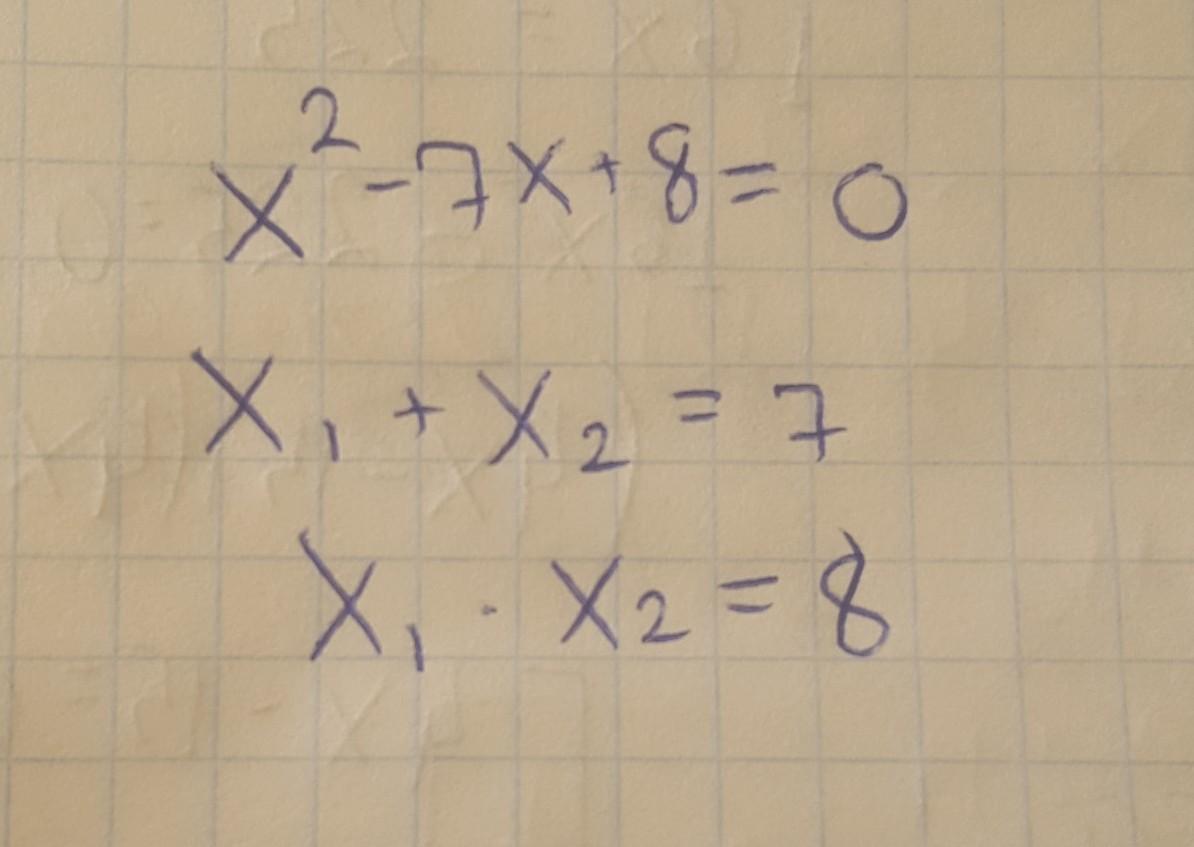 x² - 7x + 8 = 0
x₁ + x₂ = 7
x₁ · x₂ = 8